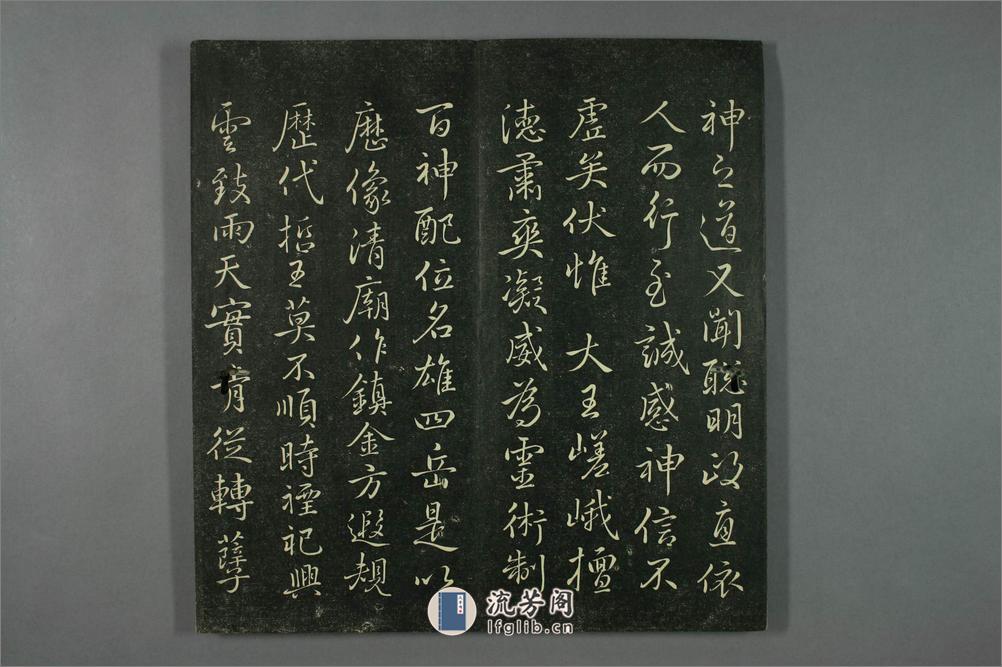 神之道又聞聰明政直依
人而行至誠感神信不
虛矣伏惟 大王嵯峨擅
德肅爽凝威為靈術制
百神配位名雄四岳是以
歷像清廟作鎮金方遐規
歷代哲王莫不順時禋祀興
雲致雨天實肯從轉孽
流芳阁
lfglib.cn